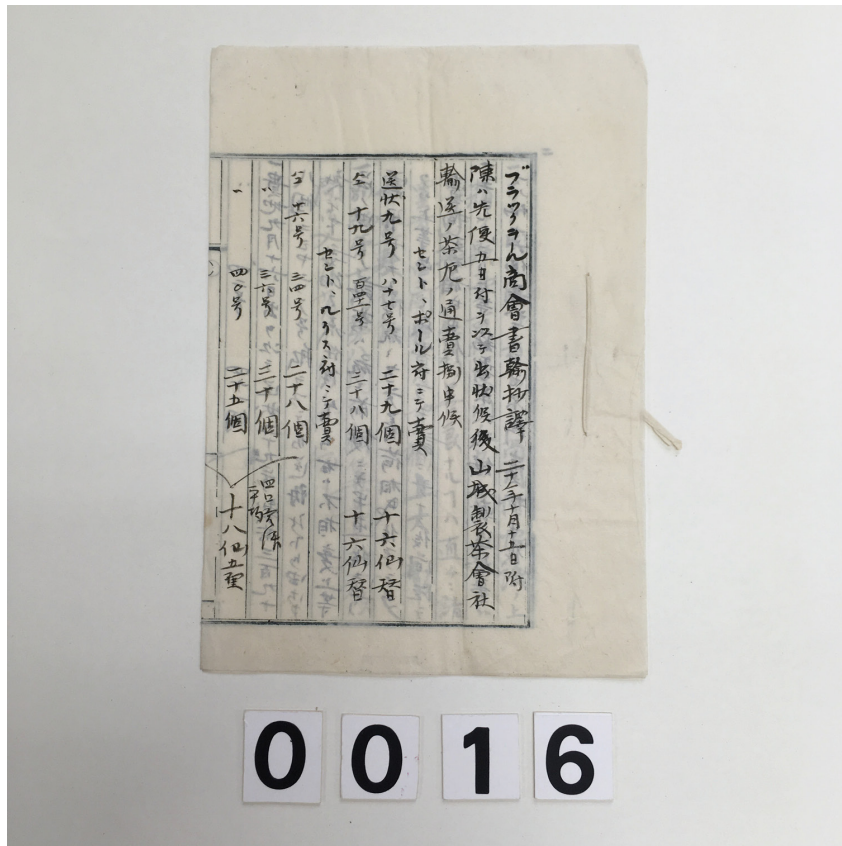 ブラツクうん商會書翰抄譯 二十一年十月十五日附
陳ハ先便五日付ヲ以テ出状候後山城製茶會社
輸送ノ茶左ノ通賣捌申候
セント、ポール府ニテ賣
送状九号 八十七号 二十九個 十六仙替
仝 十九号 百四十一号 三十八個 十六仙替
セント、ルイス府ニテ賣
仝 十六号 三四号 二十八個
〃 三六号 三十個
〃 四〇号 二十五個
四口
十八仙五厘
0016